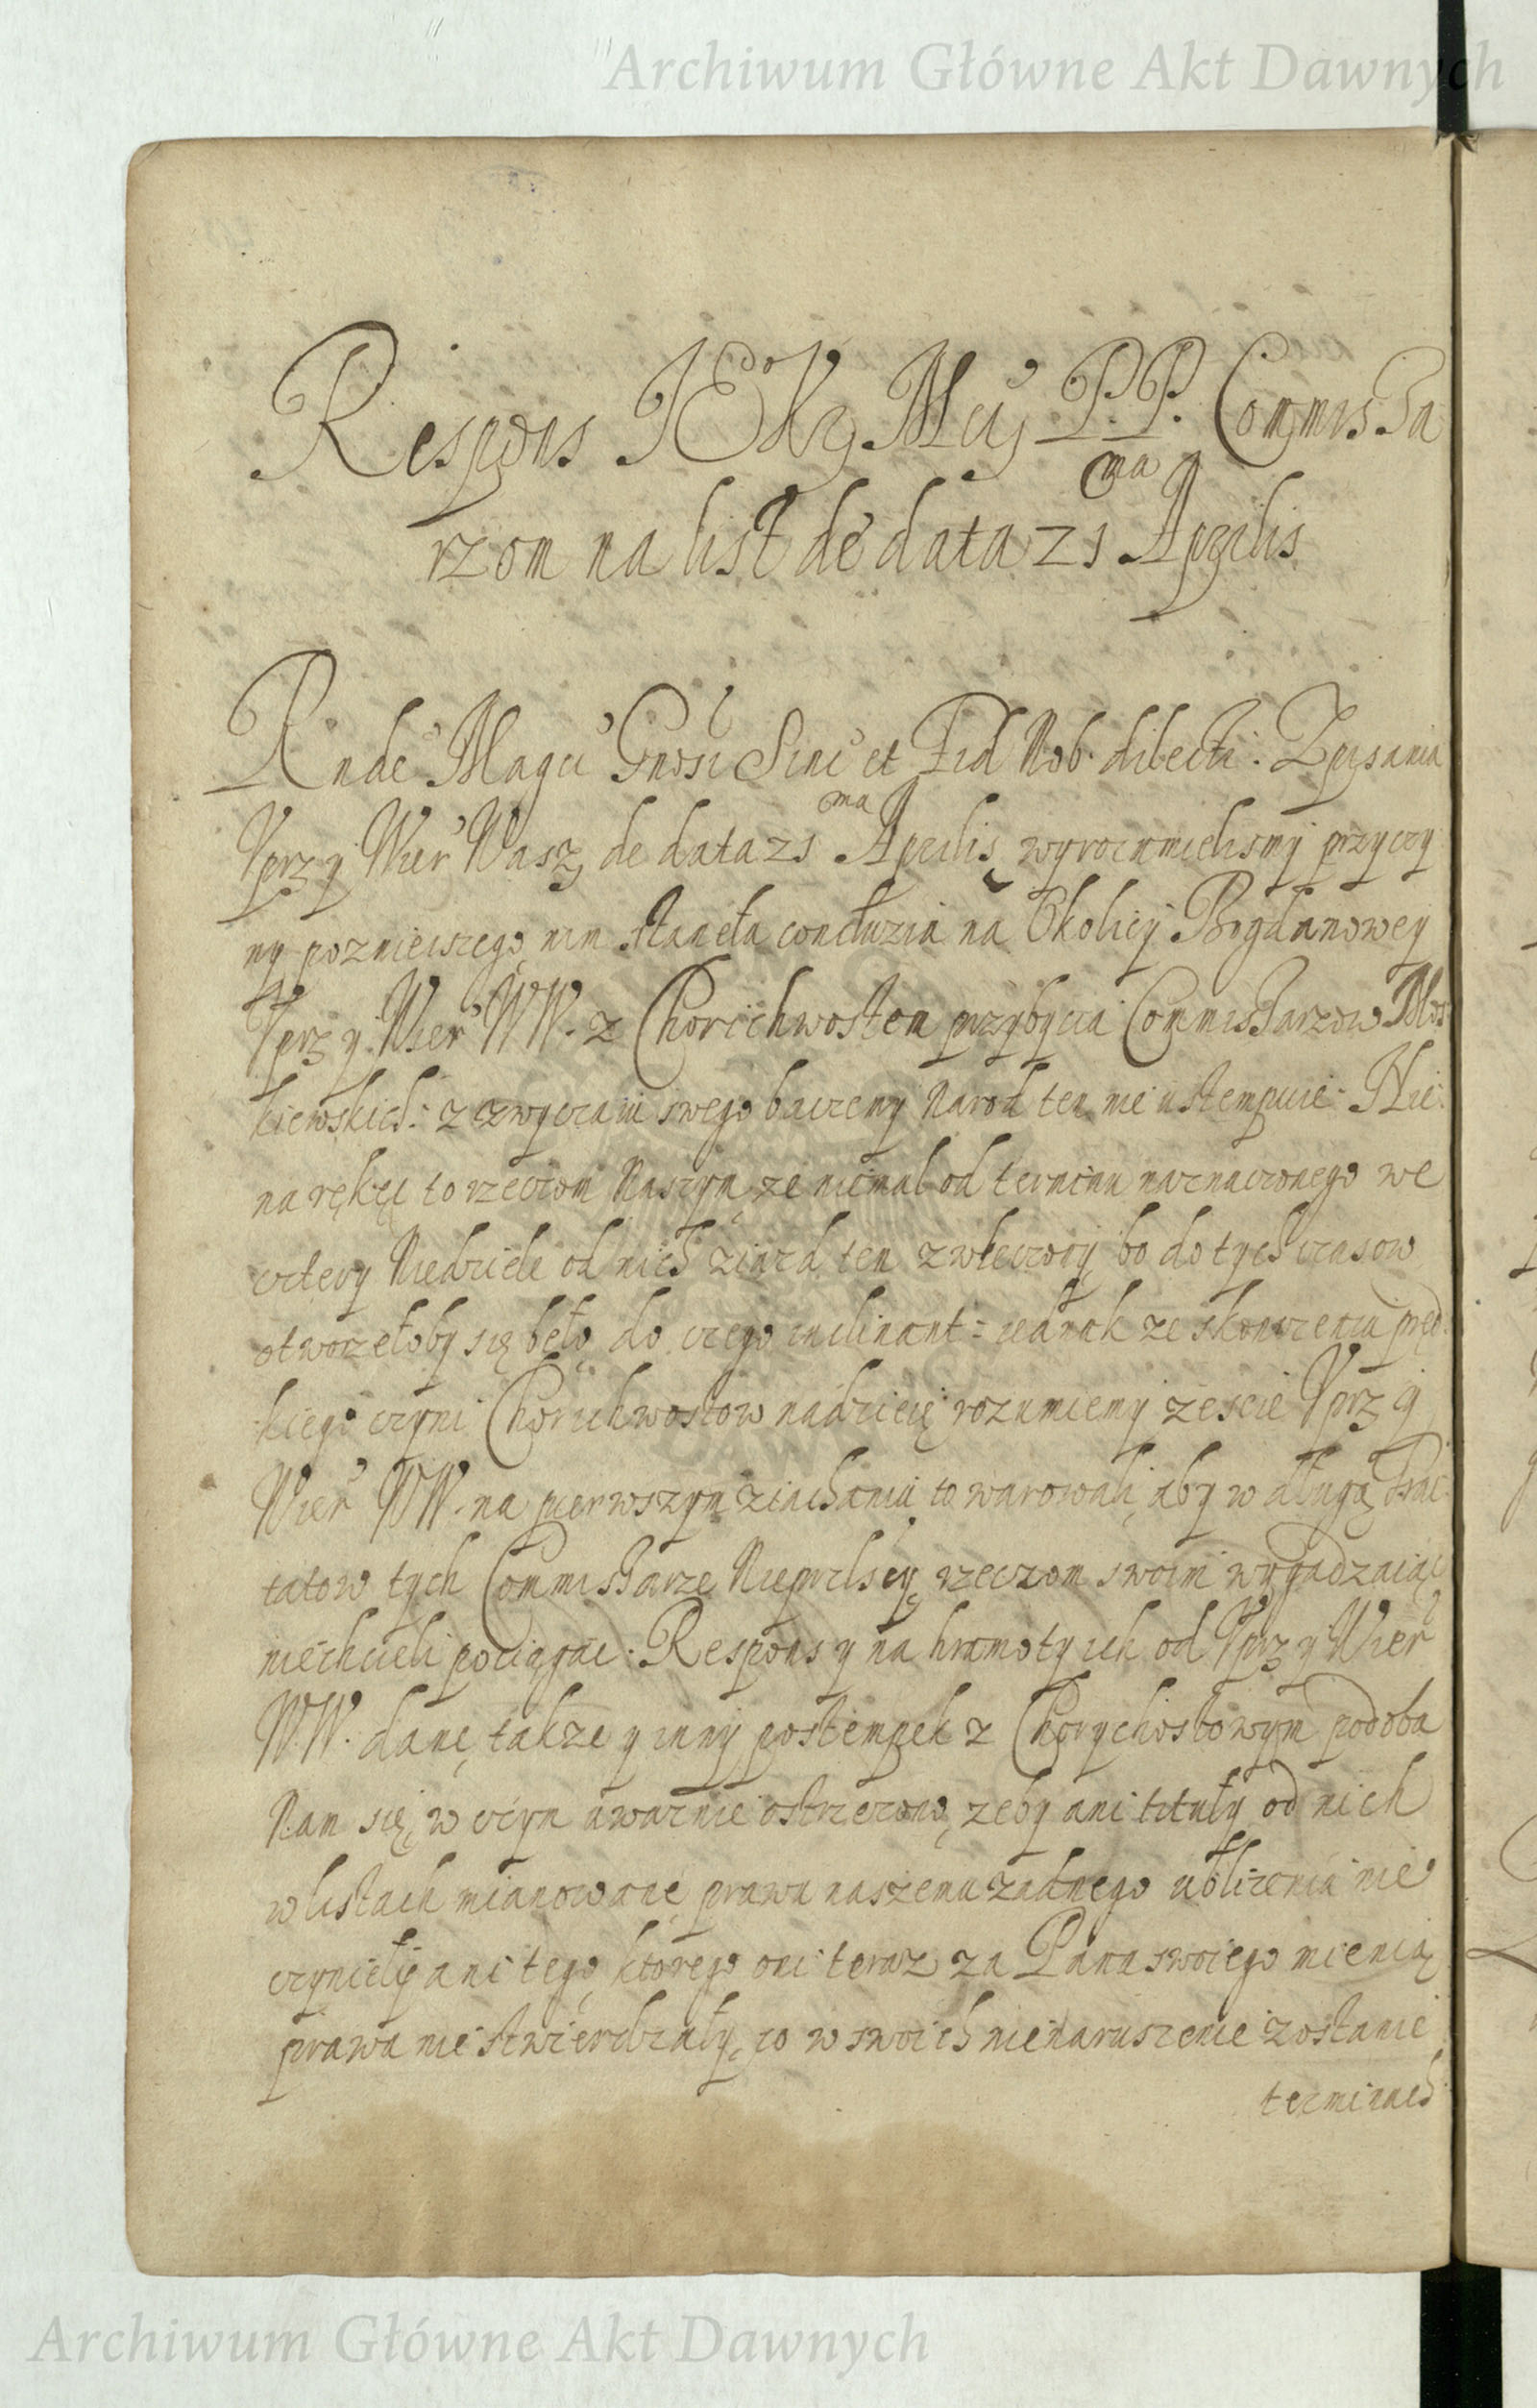 Archiwum Główne Akt Dawnych
Respons JEKr Mci PP. Commissa
rzom na list de data 21 ma Aprilis
Rnde Magci Gnosi Sinc et Fid Nob. dilecti. Zpisania
Uprzy Wier Wasz de data 21 ma Aprilis wyrozumielismy przyczy
ny poznieiszego nim stanęła concluzia na Okolicy Bogdanowey
Uprzy Wier WW. z Chorichwostem przybycia Commissarzow Mos
kiewskich: z zwyczaiu swego baczemy Narod ten nie ustempuie. Nie
na rękęć to rzeczom Naszym ze niemal od terminu naznaczonego we
cztery Niedziele od nich ziazd ten zwłeczony bo do tych czasow
otworzełoby się beło do czego inclinant: iednak ze skonczenia pręd
kiego czyni Chorichwostow nadzieię rozumiemy zescie Uprzy
Wier WW. na pierwszym ziachaniu to warowali aby w długą Trac
tatow tych Commissarze Nieprlscy rzeczom swoim wygadzaiąc
niechcieli pociągać: Responsy na hramoty ich od Uprzy Wier
WW. dane, takze y inny postempek z Chorychostowym podoba
Nam się, w czym uwaznie ostrzezono, zeby ani tituły od nich
w listach mianowane prawu naszemu zadnego ublizenia nie
czyniely ani tego, ktorego oni teraz za Pana swoiego mienią
prawa nie stwierdzały, co w swoich nienaruszenie zostanie
terminach
Archiwum Główne Akt Dawnych